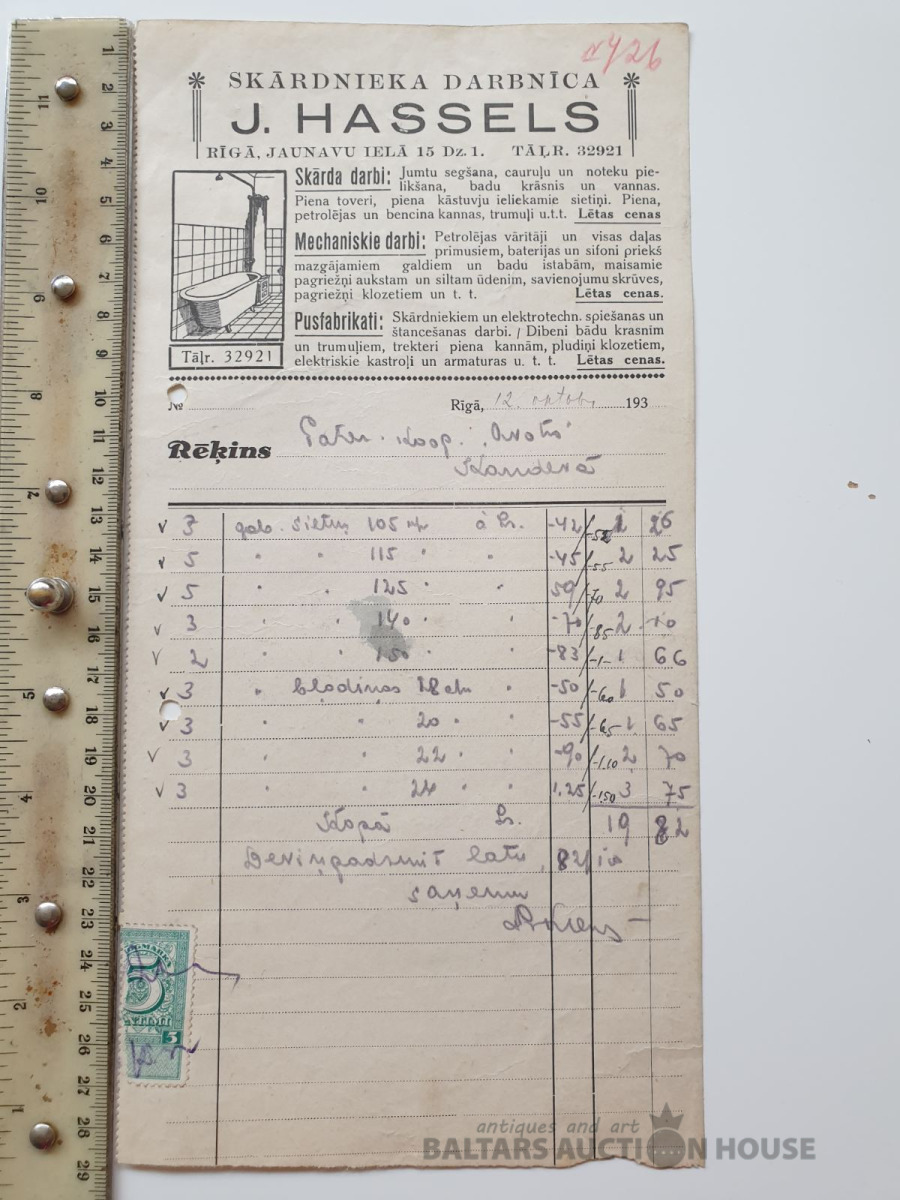 № 726
* SKĀRDNIEKA DARBNĪCA *
J. HASSELS
RĪGĀ, JAUNAVU IELĀ 15 Dz. 1. TĀĻR. 32921
Skārda darbi: Jumtu segšana, cauruļu un noteku pie-
likšana, badu krāsnis un vannas.
Piena toveri, piena kāstuvju ieliekamie sietiņi. Piena,
petrolējas un bencina kannas, trumuļi u.t.t. Lētas cenas
Mechaniskie darbi: Petrolējas vārītāji un visas daļas
primusiem, baterijas un sifoni priekš
mazgājamiem galdiem un badu istabām, maisamie
pagriežņi aukstam un siltam ūdenim, savienojumu skrūves,
pagriežņi klozetiem un t. t. Lētas cenas.
Pusfabrikati: Skārdniekiem un elektrotechn. spiešanas un
štancešanas darbi. / Dibeni bādu krasnim
un trumuļiem, trekteri piena kannām, pludiņi klozetiem,
elektriskie kastroļi un armaturas u. t. t. Lētas cenas.
Tāļr. 32921
№
Rīgā, 12. oktob. 193
Rēķins Pater. Koop. "Avots"
Kandavā
v 3 gab. sietiņ 105 à Ls. -42 1 26
v 5 " " 115 " " -45 -55 2 25
v 5 " " 125 " " 59 -70 2 95
v 3 " " 140 " " -70 -85 2 10
v 2 " " 150 " " -83 -1- 1 66
v 3 " bļodiņas 18 cm " -50 -60 1 50
v 3 " " 20 " " -55 -65 1 65
v 3 " " 22 " " -90 -1.10 2 70
v 3 " " 24 " " 1,25 -150 3 75
Kopā Ls. 19 82
Deviņpadsmit latu, 82
saņemu
5
5
antiques and art
BALTARS AUCTION HOUSE